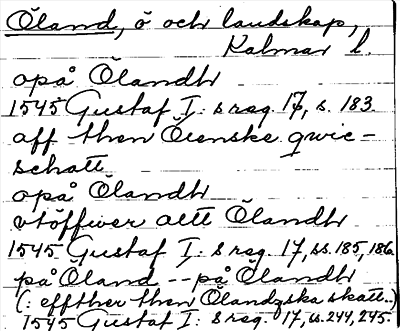 Öland, ö och landskap,
Kalmar l.
opå Ölandh
1545 Gustaf I: s reg. 17, s. 183.
aff then Öienske qwic-
schatt
opå Ölandh
vtöffwer altt Ölandh
1545 Gustaf I: s reg. 17, ss. 185, 186.
på Öland -- på Ölandh
(: effther then Ölandzska skatt..)
1545 Gustaf I: s reg. 17, ss. 244, 245.